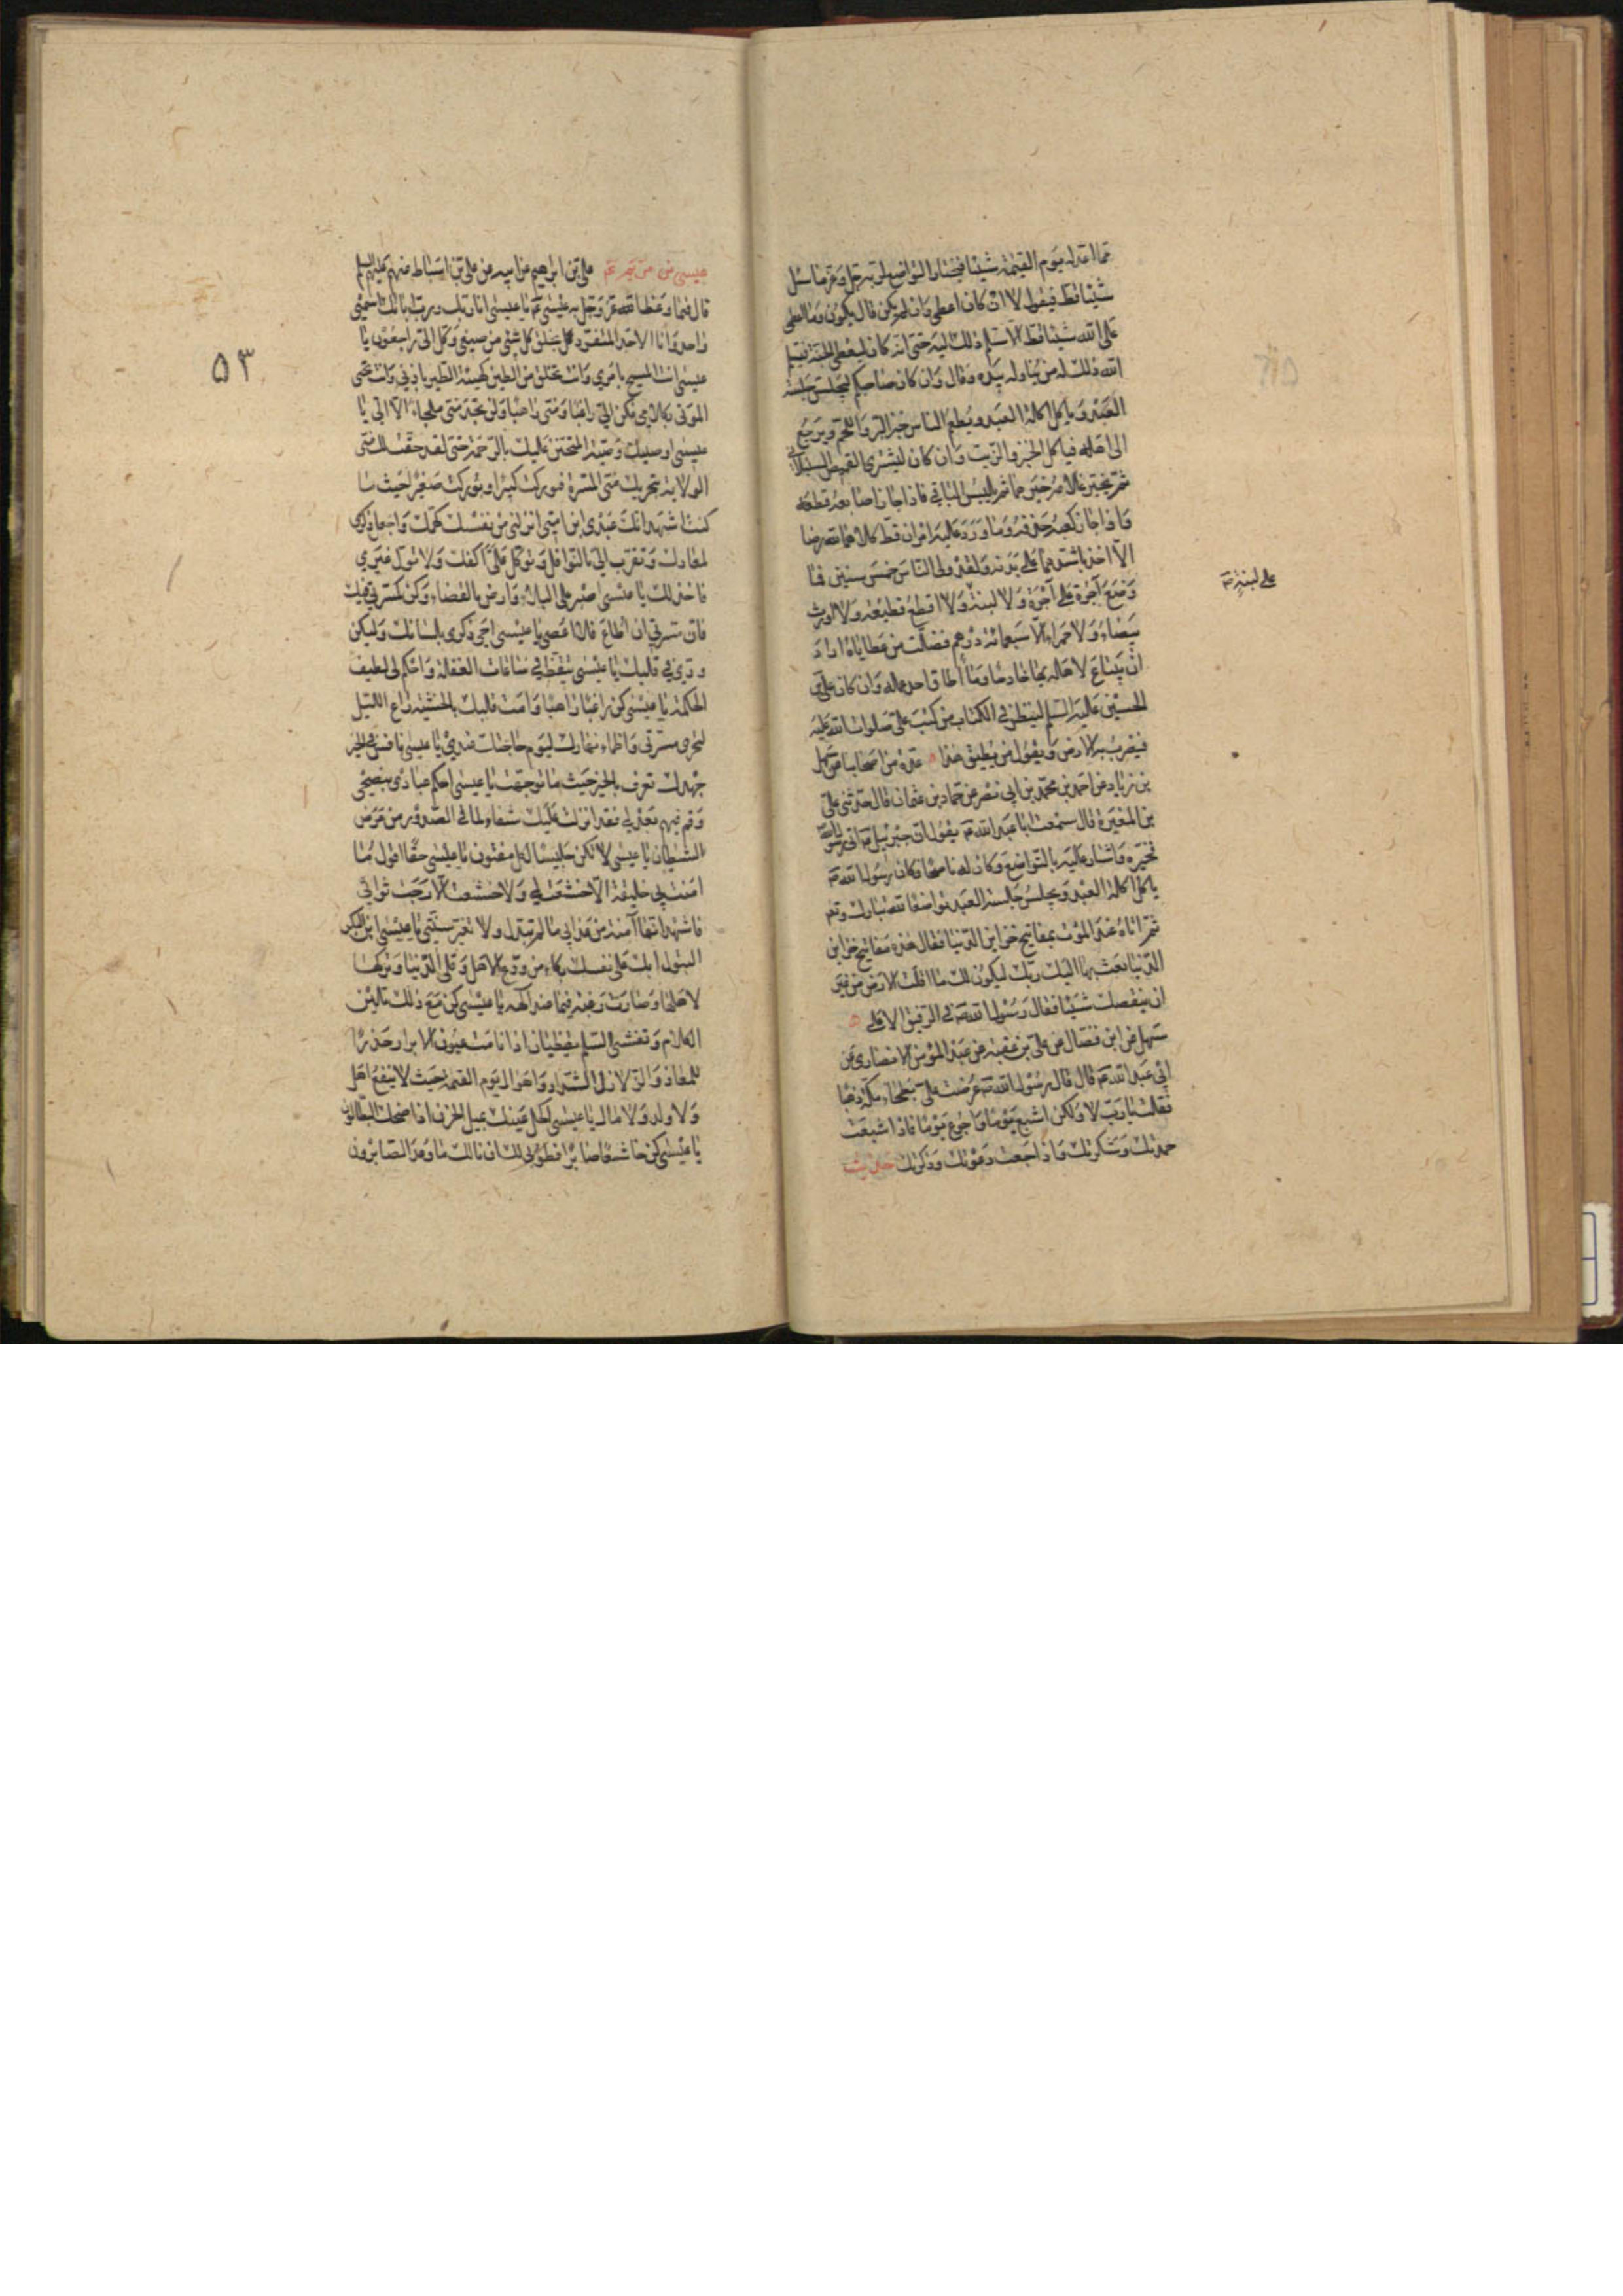 مما اعد له يوم القيمة شيئا فيختار التواضع لربه جل وعز ما سئل
شيئا قط فيقول لا ان كان اعطى وان لم يكن قال يكون وما اعطى
على الله شيئا قط الا سلم ذلك اليه حتى انه كان ليعطى الجنة فيسلم
الله ذلك له من تناوله بيده وقال وان كان صاحبكم ليجلس جلسة
العبد وياكل اكلة العبد ويطعم الناس خبز البر واللحم ويرجع
الى اهله فياكل الخبز والزيت وان كان ليشترى القميص السنبلانى
ثم يخير غلامه خيرهما ثم يلبس الباقى فاذا جاز اصابعه قطعه
واذا جاز كعبه حذفه وما ورد عليه امران قط كلاهما لله رضا
الا اخذ باشدهما على بدنه ولقد ولى الناس خمس سنين فما
وضع آجرة على آجرة ولا لبنة ولا اقطع قطيعة ولا اورث
على لبنة
بيضاء ولا حمراء الا سبعمائة درهم فضلت من عطاياه اراد
ان يبتاع لاهله بها خادما وما اطاق احد عمله وان كان على بن
الحسين عليه السلم لينظر فى الكتاب من كتب على صلوات الله عليه
فيضرب به الارض ويقول من يطيق هذا عدة من اصحابنا عن سهل
بن زياد عن احمد بن محمد بن ابى نصر عن حماد بن عثمان قال حدثنى على
بن المغيرة قال سمعت ابا عبد الله ع يقول ان جبرئيل ع اتى رسول الله
فخيره واشار عليه بالتواضع وكان له ناصحا وكان رسول الله ص
ياكل اكلة العبد ويجلس جلسة العبد تواضعا لله تبارك وتعا
ثم اتاه عند الموت بمفاتيح خزاين الدنيا فقال هذه مفاتيح خزاين
الدنيا بعث بها اليك ربك ليكون لك ما اقلت الارض من غير
ان ينقصك شيئا فقال رسول الله ص فى الرفيق الاعلى
سهل عن ابن فضال عن على بن عقبة عن عبد المؤمن الانصارى عن
ابى عبد الله ع قال قال رسول الله ص عرضت على بطحاء مكة ذهبا
فقلت يا رب لا ولكن اشبع يوما واجوع يوما فاذا شبعت
حمدتك وشكرتك واذا جعت دعوتك وذكرتك حديث
٥٣
عيسى بن مريم ع على بن ابراهيم عن ابيه عن على بن اسباط عنهم عليهم السلم
قال فيما وعظ الله عز وجل به عيسى ع يا عيسى انا ربك ورب ابائك اسمى
واحد وانا الاحد المتفرد بخلق كل شئ من صنعى وكل الى راجعون يا
عيسى انت المسيح بامرى وانت تخلق من الطين كهيئة الطير باذنى وانت تحيى
الموتى بكلامى فكن الى راغبا ومنى راهبا ولن تجد منى ملجاء الا الى يا
عيسى اوصيك وصية المتحنن عليك بالرحمة حتى حقت لك منى
الولاية بتحريك منى المسرة فبوركت كبيرا وبوركت صغيرا حيث ما
كنت اشهد انك عبدى ابن امتى انزلنى من نفسك كهمك واجعل ذكرى
لمعادك وتقرب الى بالنوافل وتوكل على اكفك ولا تول غيرى
فاخذلك يا عيسى اصبر على البلاء وارض بالقضاء وكن كمسرتى فيك
فان مسرتى ان اطاع فلا اعصى يا عيسى احى ذكرى بلسانك وليكن
ودى فى قلبك يا عيسى تيقظ فى ساعات الغفلة واحكم لى لطيف
الحكمة يا عيسى كن راغبا راهبا وامت قلبك بالخشية راع الليل
لتحرى مسرتى واظماء نهارك ليوم حاجتك عندى يا عيسى نافس فى الخير
جهدك تعرف بالخير حيث ما توجهت يا عيسى احكم عبادى بنصحى
وقم فيهم بعدلى فقد انزلت عليك شفاء لما فى الصدور من مرض
الشيطان يا عيسى لا تكن جليسا لكل مفتون يا عيسى حقا اقول ما
امنت بى خليقة الا خشعت لى ولا خشعت الا رجت ثوابى
فاشهد انها آمنة من عذابى ما لم تبدل ولا تغير سنتى يا عيسى ابن البكر
البتول ابك على نفسك بكاء من ودع الاهل وقلى الدنيا وتركها
لاهلها وصارت رغبته فيما عند الهه يا عيسى كن مع ذلك تلين
الكلام وتفشى السلم يقظان اذا نامت عيون الابرار حذرا
للمعاد والزلازل الشداد واهوال يوم القيمة حيث لا ينفع اهل
ولا ولد ولا مال يا عيسى اكحل عينك بميل الحزن اذا ضحك البطالون
يا عيسى كن خاشعا صابرا فطوبى لك ان نالك ما وعد الصابرون